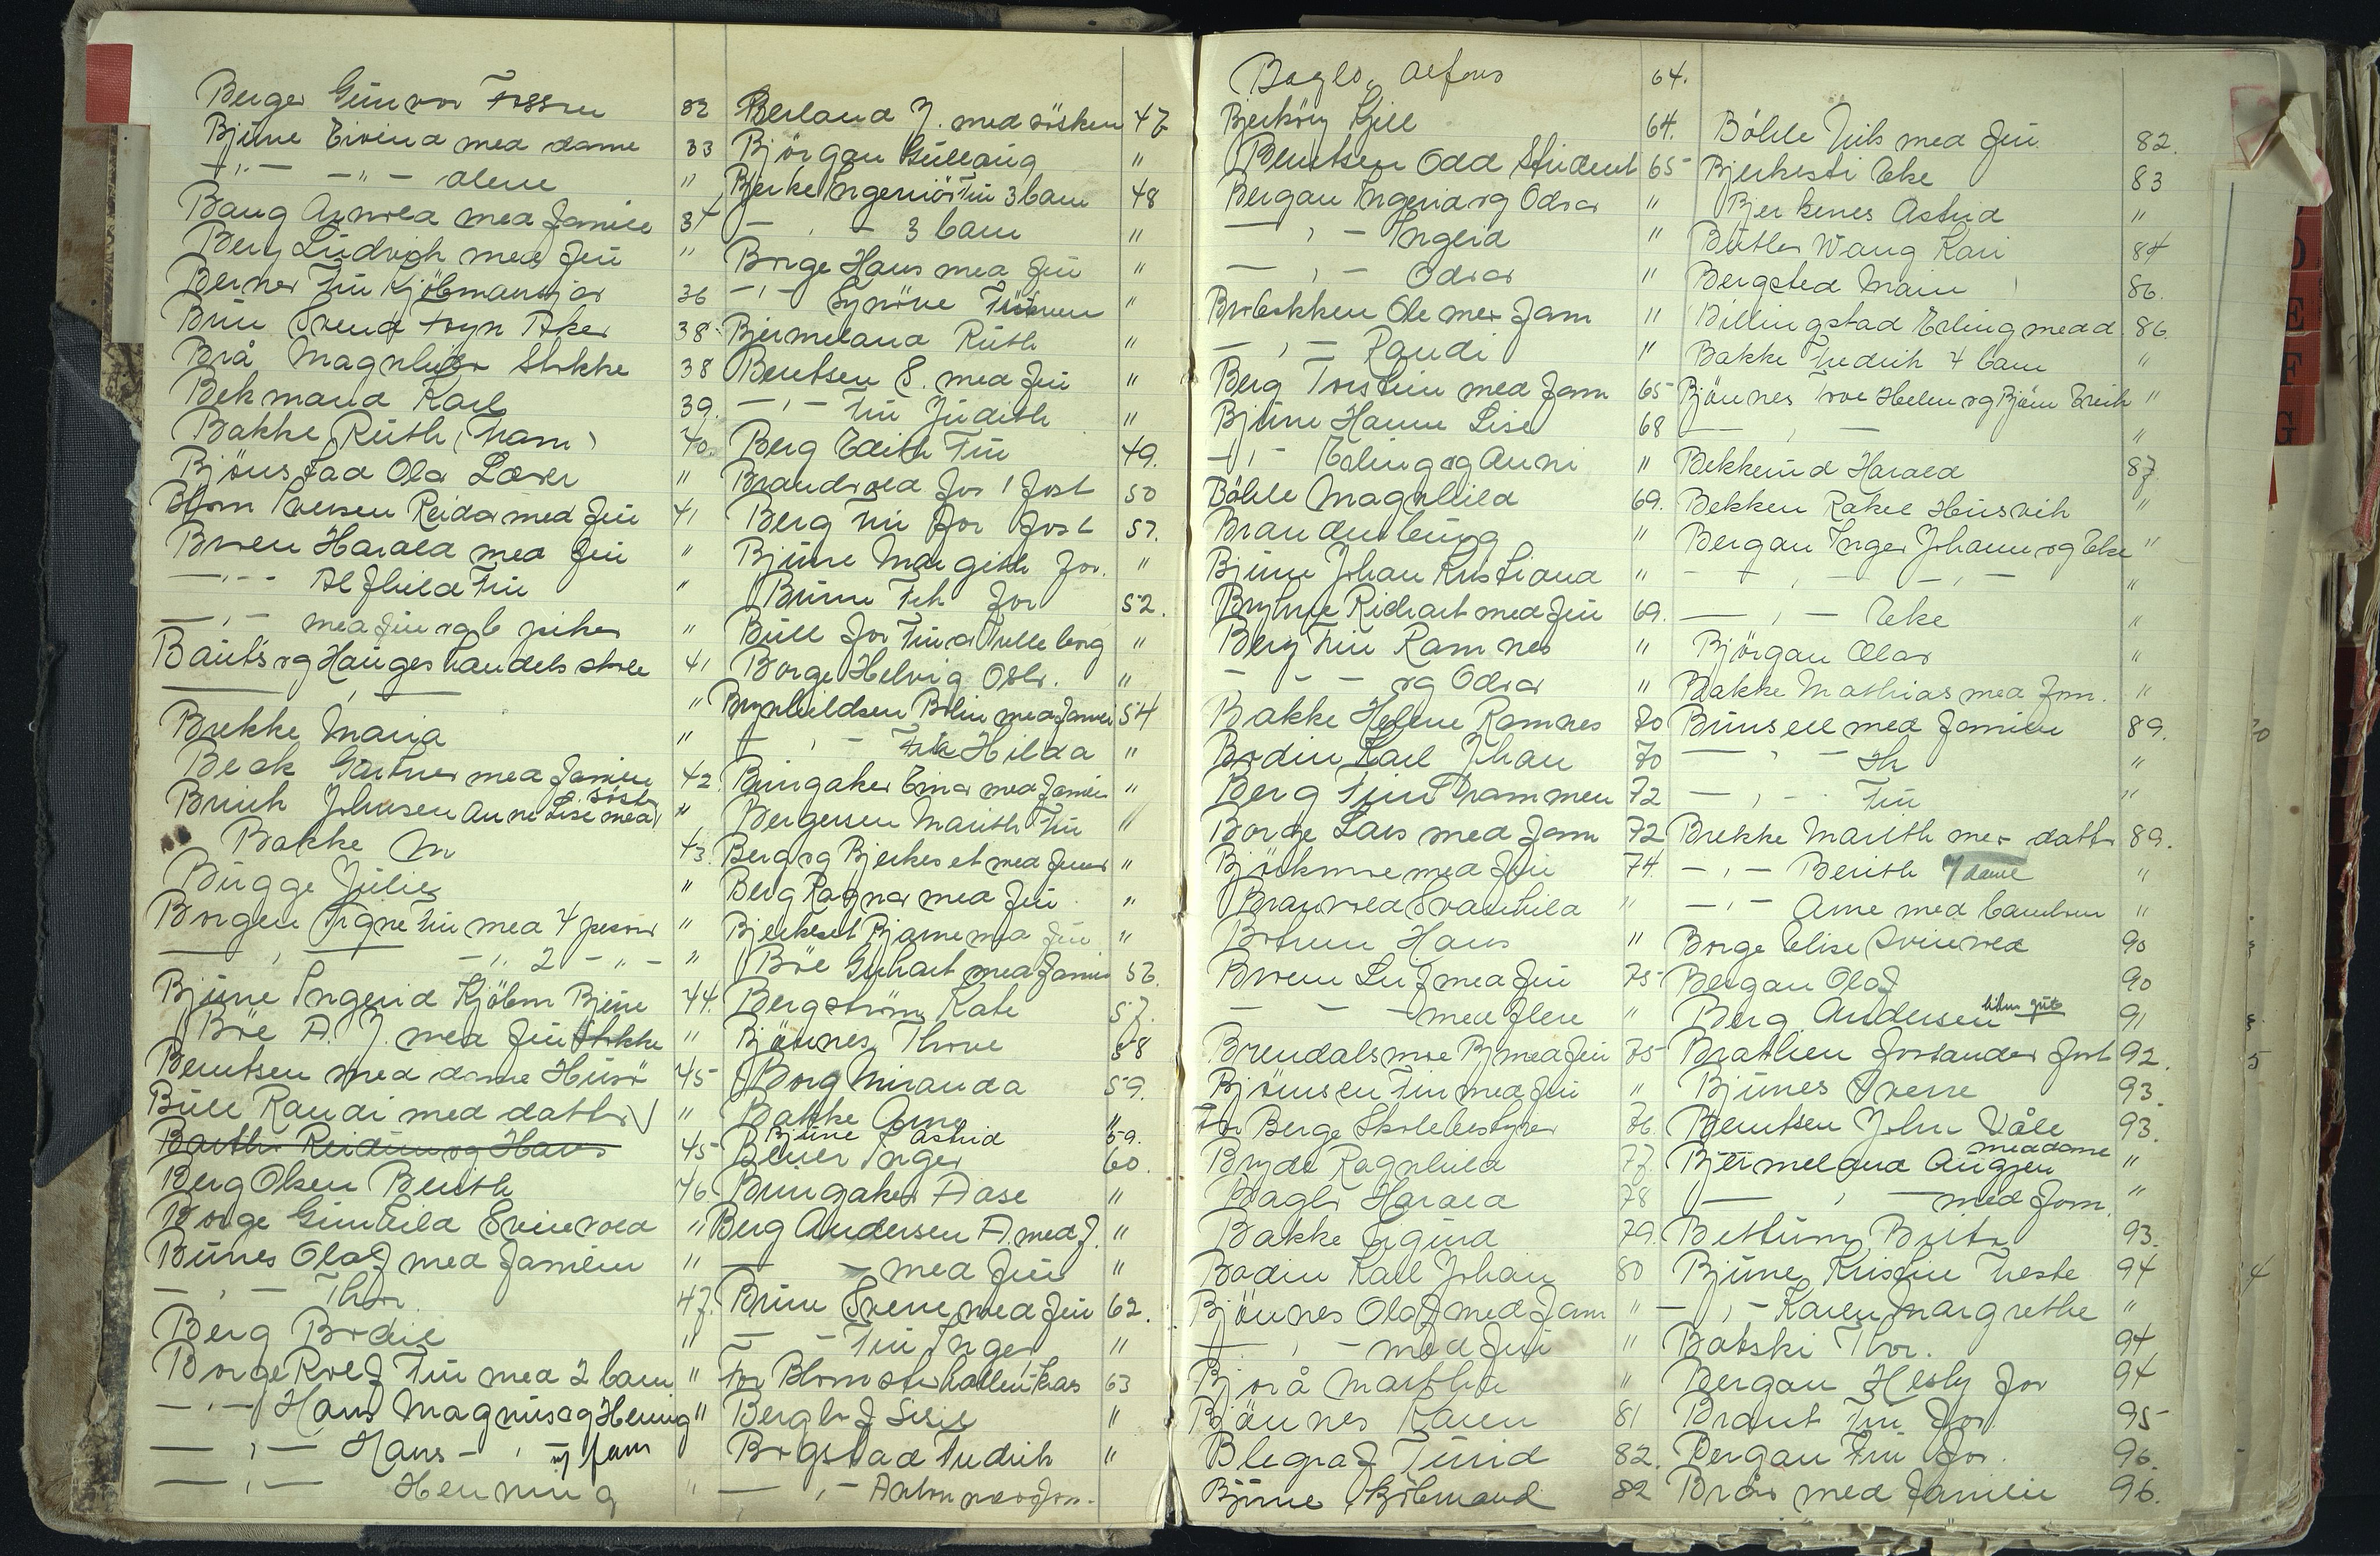 Berger Gunvor Fossen 32
Bjune Eivind med dame 33
—"— —"— alene "
Baug Arnold med familie 34
Berg Ludvigh med fru "
Berner Fru Kjöbmansgar 36
Brun Svend Fogn Aker 38
Brå Magnhild Stokke 38
Bekmand Karl 39.
Bakke Ruth (Tram) 40.
Björnstad Ola Lærer "
Blom Iversen Reidar med fru 41
Broen Harald med fru "
—"— Alfhild Fru "
—"— med fru og 6 piker "
Bauts og Hauges handelsskole 41
— , — "
Brekke Maria "
Beck Gartner med familie 42.
Bruch Johnsen Anne Lise med söster "
Bakke M 43.
Bugge Julie "
Borgen Signe Fru med 4 person "
— , — —"— 2 —"— "
Bjune Ingerid Kjöbm Bjune 44.
Böe A. J. med fru Stokke "
Berntsen med dame Husö 45
Bull Randi med datter "
Barth Reidun og Hans 45
Berg Olsen Berith 46.
Borge Gunhild Svinevold "
Bunes Olaf med familien "
— , — Thor 47.
Berg Bodil "
Borge Rolf Fru med 2 barn "
—"— Hans Magnus og Henning "
— , — Hans — , — fam
— , — Henning "
Berland J. med söskn 47
Björgan Gullaug "
Bjerke Ingeniör Fru 3 barn 48
— , — 3 barn "
Borge Hans med fru "
—"— Synöve Fröken "
Bjermeland Ruth "
Bentsen S. med fru "
—"— Fru Judith "
Berg Edith Fru 49.
Brandvold Jos 50
Berg Fru for 51.
Bjune Margith for. "
Brunn Frk for 52.
Bull for Fru Trelleborg "
Borge Helvig Oslo. "
Brynhildsen Bolin med familie 54
— , — Frk Hilda "
Bringaker Einar med familie "
Bergersen Marith Fru "
Berg og Bjerkeset med fruer "
Berg Ragnar med fru "
Bjerkeset Bjarne med fru "
Böe Gerhart med familie 56
Bergström Kate 57.
Bjönnes Thove 58
Borg Miranda 59.
Bakke Arne "
Bjune Astrid 59.
Beuer Inger 60.
Bringaker Aase "
Berg Andersen A. med f. "
— — med fru "
Brun Svenn med fru 62.
— — Fru Inger "
For Blomsterhallen 63
Berglöf Lisie "
Bogstad Fredrik "
— , — Anton
Boglö, Alfons 64.
Bjerköy Kjell 64.
Berntsen Odd Student 65
Bergan Ingerid og Oddvar "
— , — Ingerid "
— , — Oddvar "
Brobakken Ole med fam "
— , — Randi "
Berg Torstein med fam 65
Bjune Hanne Lise 68
—"— Erling og Anni "
Böhle Magnhild 69.
Brandenburg "
Bjune Johan Kristiana "
Brynge Richart med fru 69.
Berg Fru Ramnes "
— — — og Oddvar "
Bakke Helene Ramnes 70
Bodin Karl Johan 70
Berg Fru Drammen 72
Borge Lars med fam 72
Björkmoe med fru 74.
Branvold Svanhild "
Botnen Hans "
Broen Leif med fru 75
— — — med flere "
Brendalsmoe Bj med fru 75
Björnsen Fru med fru "
For Berge Skolebestyrer 76.
Bryde Ragnhild 77.
Boglö Harald 78
Bakke Sigurd 79.
Bodin Karl Johan 80
Bjönnes Olaf med fam "
— , — med fru "
Bjorå Martha "
Bjönnes Karen 81
Blegraf Turid 82.
Bjune, Kjöbmand 82
Böhle Nils med fru. 82.
Bjerkesti Elke 83
Bjerkenes Astrid "
Butler Wang Kari 84
Bergsted Marie 86.
Billingstad Erling med d. 86.
Bakke Fredrik 4 barn "
Bjönnes Tove Helen og Björn Erich "
— , — "
Bekkerud Harald 87.
Bekken Rakel Husvik "
Bergan Inger Johanne og Elke "
— — , — — , — "
— , — Elke "
Björgan Olav "
Bakke Mathias med fam. "
Brunsell med familien 89.
— , — "
— , — Fru "
Brekke Marith med datter 89.
—"— Berith "
—"— Arne med barnebarn "
Borge Elise Svinevold 90
Bergan Olaf 90
Berg Andersen 91
Brathen Forstander 92.
Bjunes Sverre 93.
Berntsen John Våle 93.
Bjermeland Augen med dame "
— , — med fam. "
Bettum Brita 93.
Bjune Kristine Neste 94
— , — Karen Margrethe "
Batski Thor. 94
Bergan Hesby for 94
Brant Fru for 95
Bergan Fru for. 96.
Brår med familie 96.